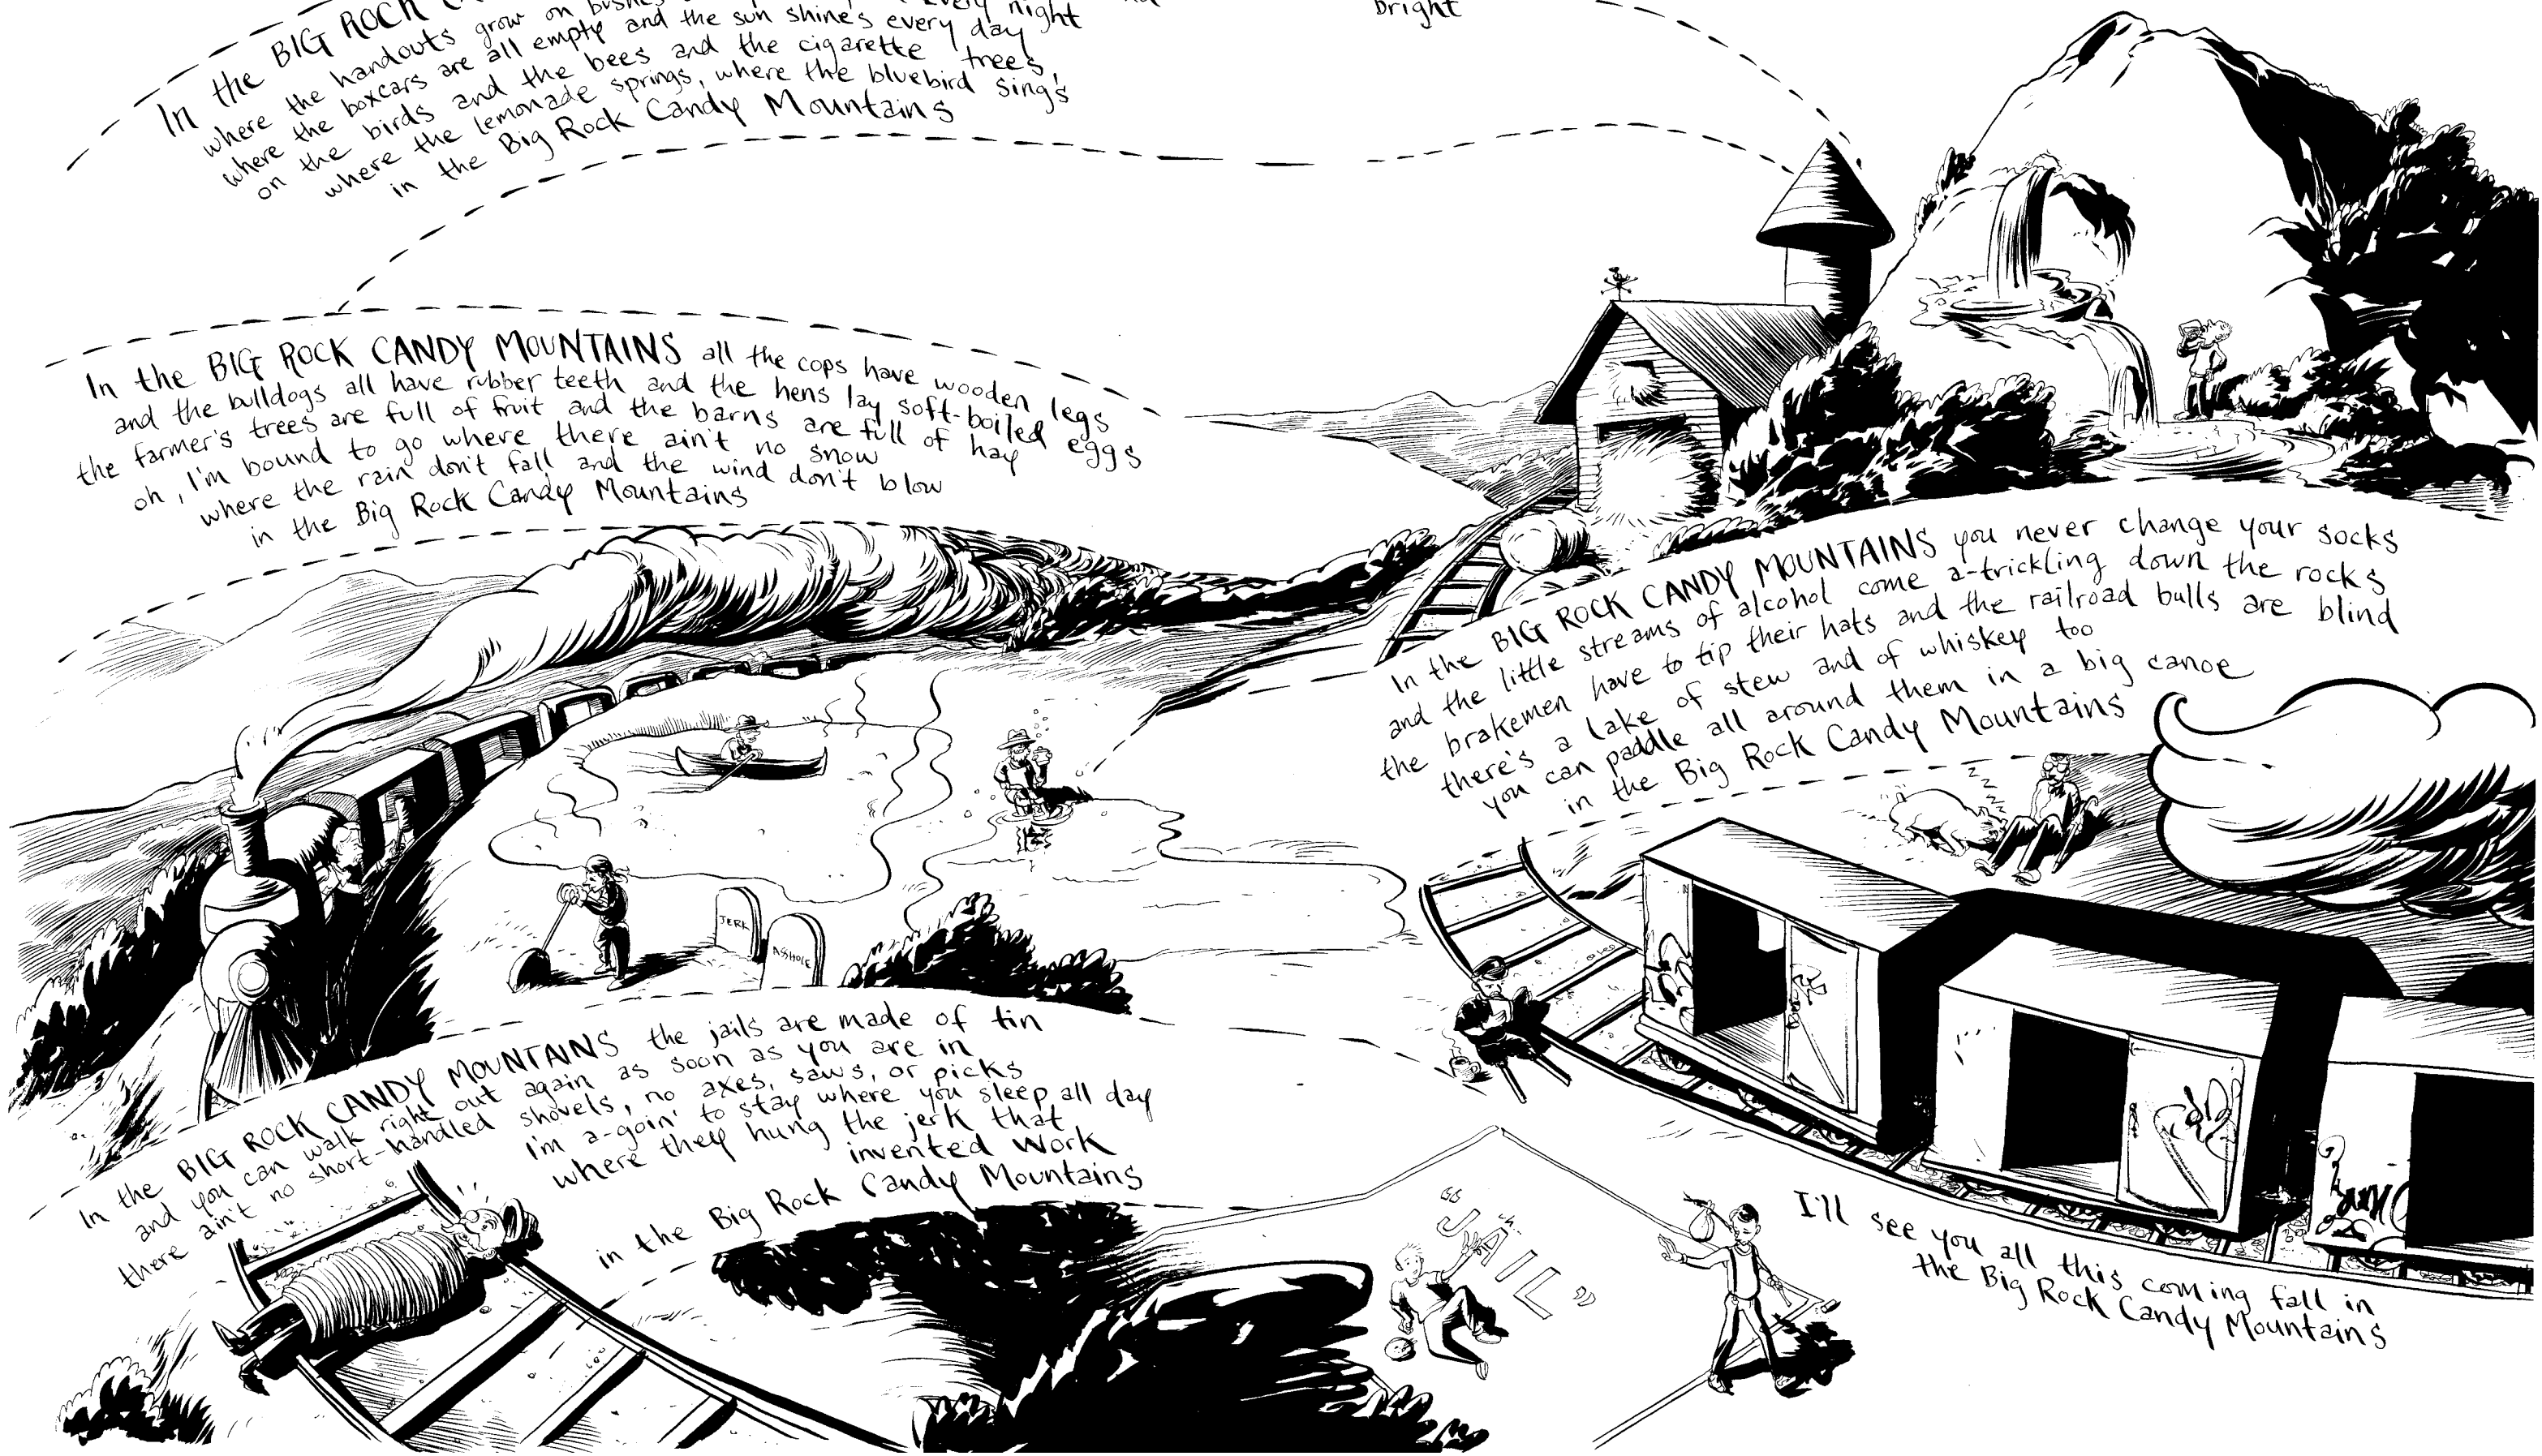 bright
In the BIG ROCK
where the handouts grow on bushes every night
where the boxcars are all empty and the sun shines every day
on the birds and the bees and the cigarette trees,
where the lemonade springs, where the bluebird sings
in the Big Rock Candy Mountains
In the BIG ROCK CANDY MOUNTAINS all the cops have wooden legs
and the bulldogs all have rubber teeth and the hens lay soft-boiled eggs
the farmer's trees are full of fruit and the barns are full of hay
oh, I'm bound to go where there ain't no snow
where the rain don't fall and the wind don't blow
in the Big Rock Candy Mountains
In the BIG ROCK CANDY MOUNTAINS you never change your socks
and the little streams of alcohol come a-trickling down the rocks
the brakemen have to tip their hats and the railroad bulls are blind
there's a lake of stew and of whiskey too
you can paddle all around them in a big canoe
in the Big Rock Candy Mountains
zzzz
JERK
ASSHOLE
In the BIG ROCK CANDY MOUNTAINS the jails are made of tin
and you can walk right out again as soon as you are in
there ain't no short-handled shovels, no axes, saws, or picks
I'm a-goin' to stay where you sleep all day
where they hung the jerk that
invented work
in the Big Rock Candy Mountains
"JAIL"
I'll see you all this coming fall in
the Big Rock Candy Mountains